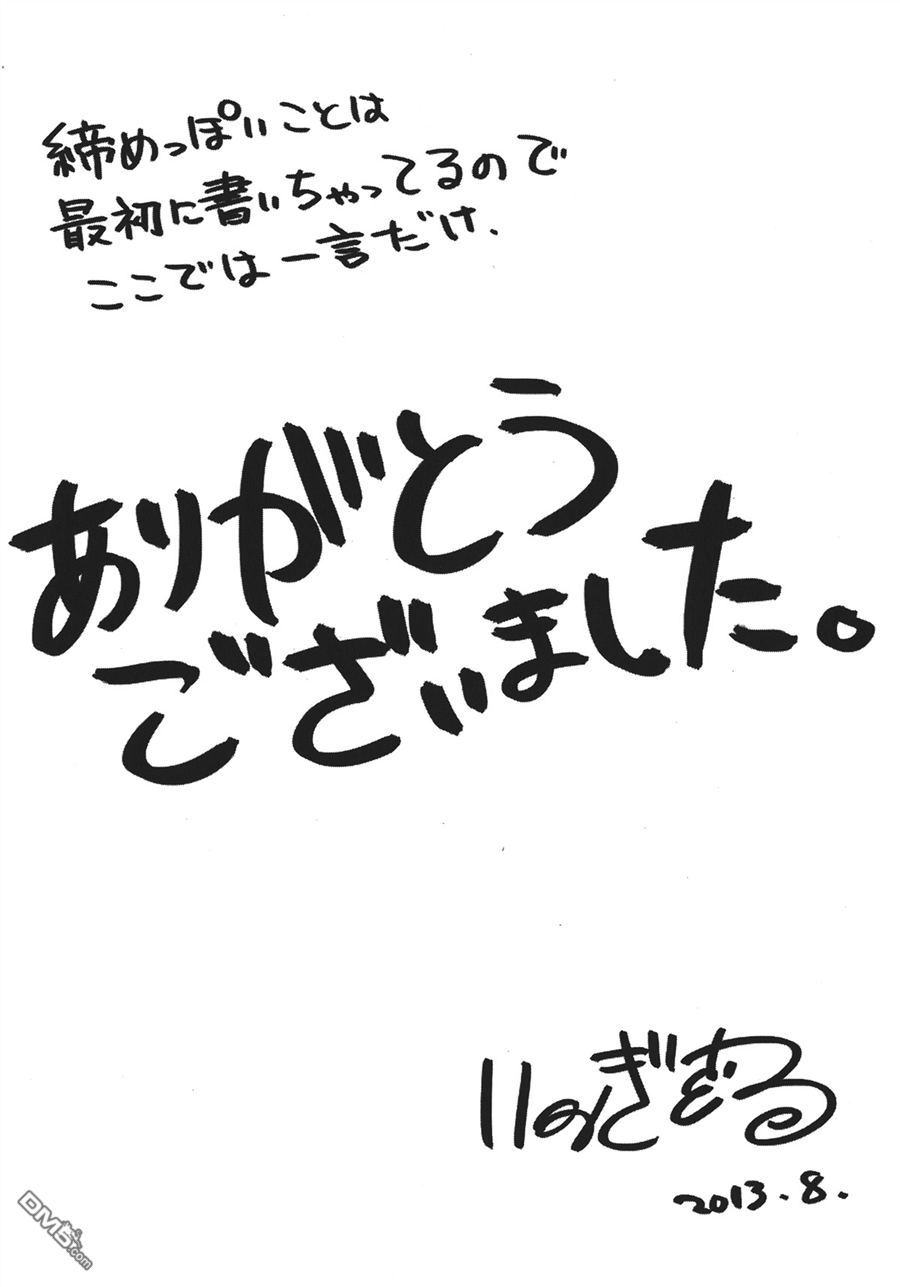 締めっぽいことは
最初に書いちゃってるので
ここでは一言だけ、
ありがとう
ございました。
2013.8.
DM5.com